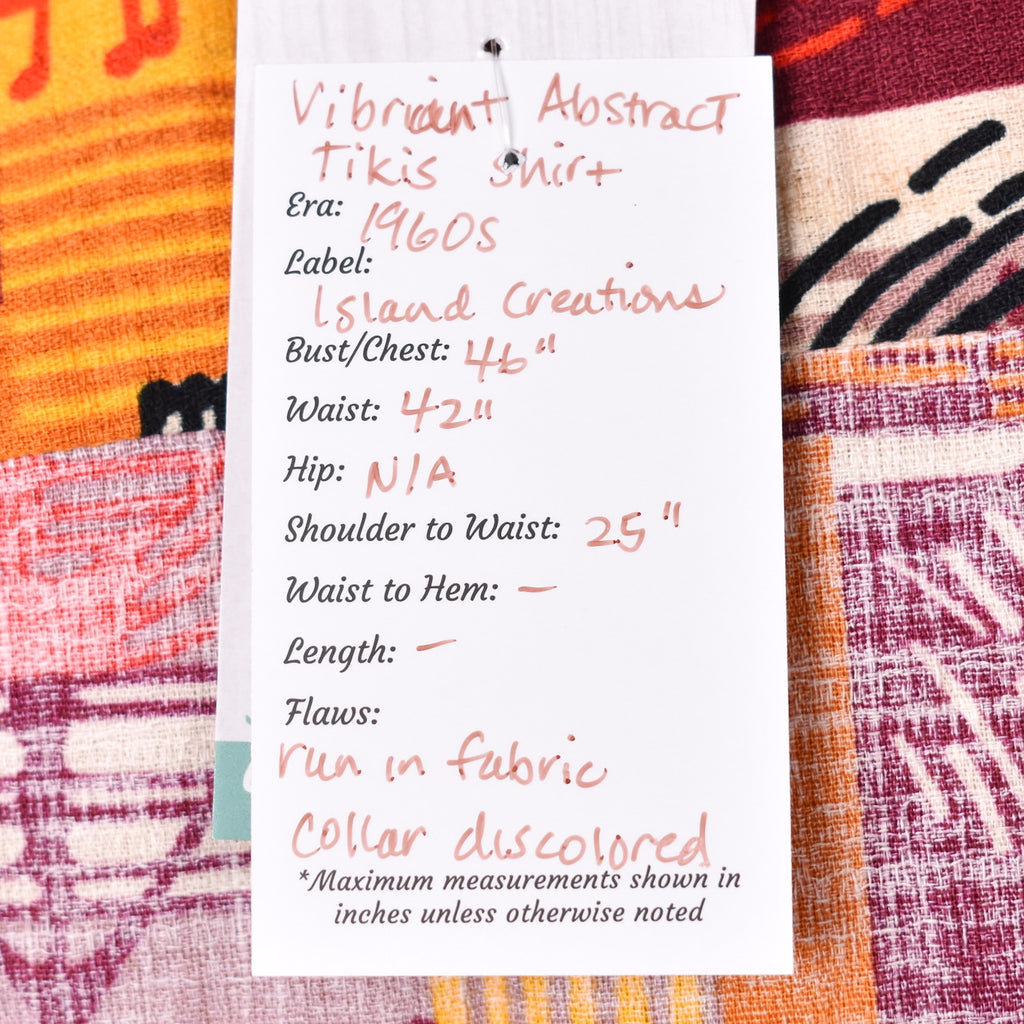 Vibrant Abstract
Tikis Shirt
Era: 1960s
Label:
Island Creations
Bust/Chest: 46"
Waist: 42"
Hip: N/A
Shoulder to Waist: 25"
Waist to Hem: —
Length: —
Flaws:
run in fabric
Collar discolored
*Maximum measurements shown in
inches unless otherwise noted